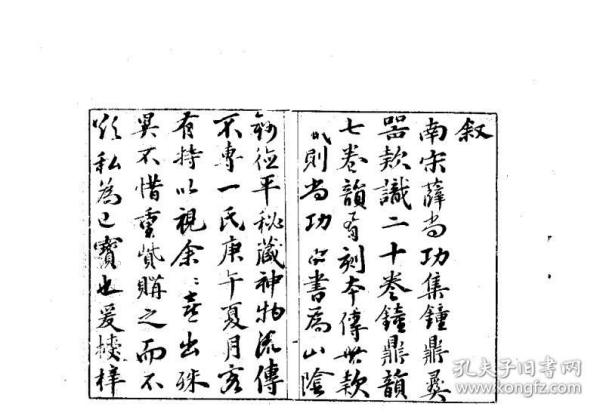 叙
南宋薛尚功集鐘鼎彝
器款識二十卷鐘鼎韻
七卷韻有刻本傳世款
識則尚功手書為山陰
錢德平秘藏神物流傳
不專一氏庚午夏月客
有持以視余〻喜出殊
異不惜重貲購之而不
欲私為己寶也爰授梓
孔夫子旧书网
www.kongfz.com